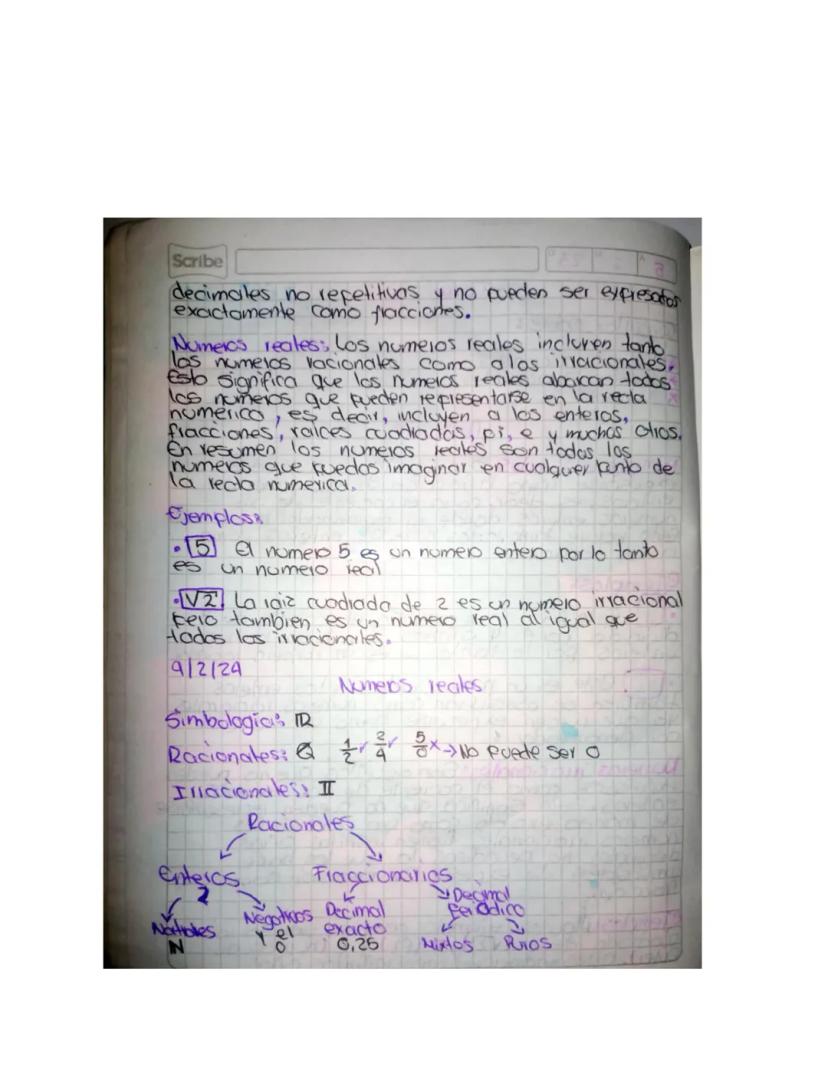 Scribe
decimales no repetitivos y no pueden ser expresados
exactamente como fracciones.
Numeros reales: Los numeros reales incluyen tanto
los numeros racionales como a los irracionales.
Esto significa que los numeros reales abarcan todos
los numeros que pueden representarse en la recta
numerica, es decir, incluyen a los enteros,
fracciones, raices cuadradas, pi, e y muchos otros.
En resumen los numeros reales son todos los
numeros que puedas imaginar en cualquer punto de
la recta numerica.
Ejemplos:
• 5 El numero 5 es un numero entero por lo tanto
es un numero real
• √2 La raiz cuadrada de 2 es un numero irracional
pero tambien es un numero real al igual que
todos los irracionales.
9/2/24
Numeros reales
Simbologia: ℝ
Racionales: Q 1/2 ✓ 2/4 ✓ 5/0 x → No puede ser 0
Irracionales: II
Racionales
Enteros Fraccionarios
Z Decimal
Naturales Negativos Decimal periodico
N y el exacto
0 0,25 Mixtos Puros